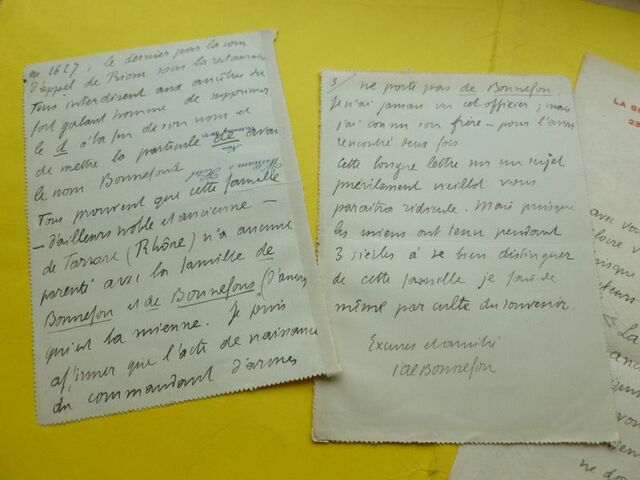 en 1627, le dernier par la cour
d'appel de Riom sous la restauration
Tous interdisent aux ancêtres du
fort galant homme de supprimer
le d à la fin de son nom et
de mettre la particule de avant
le nom Bonnefond
Tous prouvent que cette famille
- d'ailleurs noble et ancienne -
de Tarare (Rhône) n'a aucune
parenté avec la famille de
Bonnefon et de Bonnefons (d'
qui est la mienne. Je puis
affirmer que l'acte de naissance
du commandant d'armes
3/ ne porte pas de Bonnefon.
Je n'ai jamais vu cet officier ; mais
j'ai connu son frère - pour l'avoir
rencontré deux fois
Cette longue lettre sur un sujet
puérilement vieillot vous
paraitra ridicule. Mais puisque
les miens ont tenu pendant
3 siècles à se bien distinguer
de cette famille je fais de
même par culte du souvenir.
Excuses et amitié
J de Bonnefon
LA
23
avec vou
loire v
La
vou
ne do